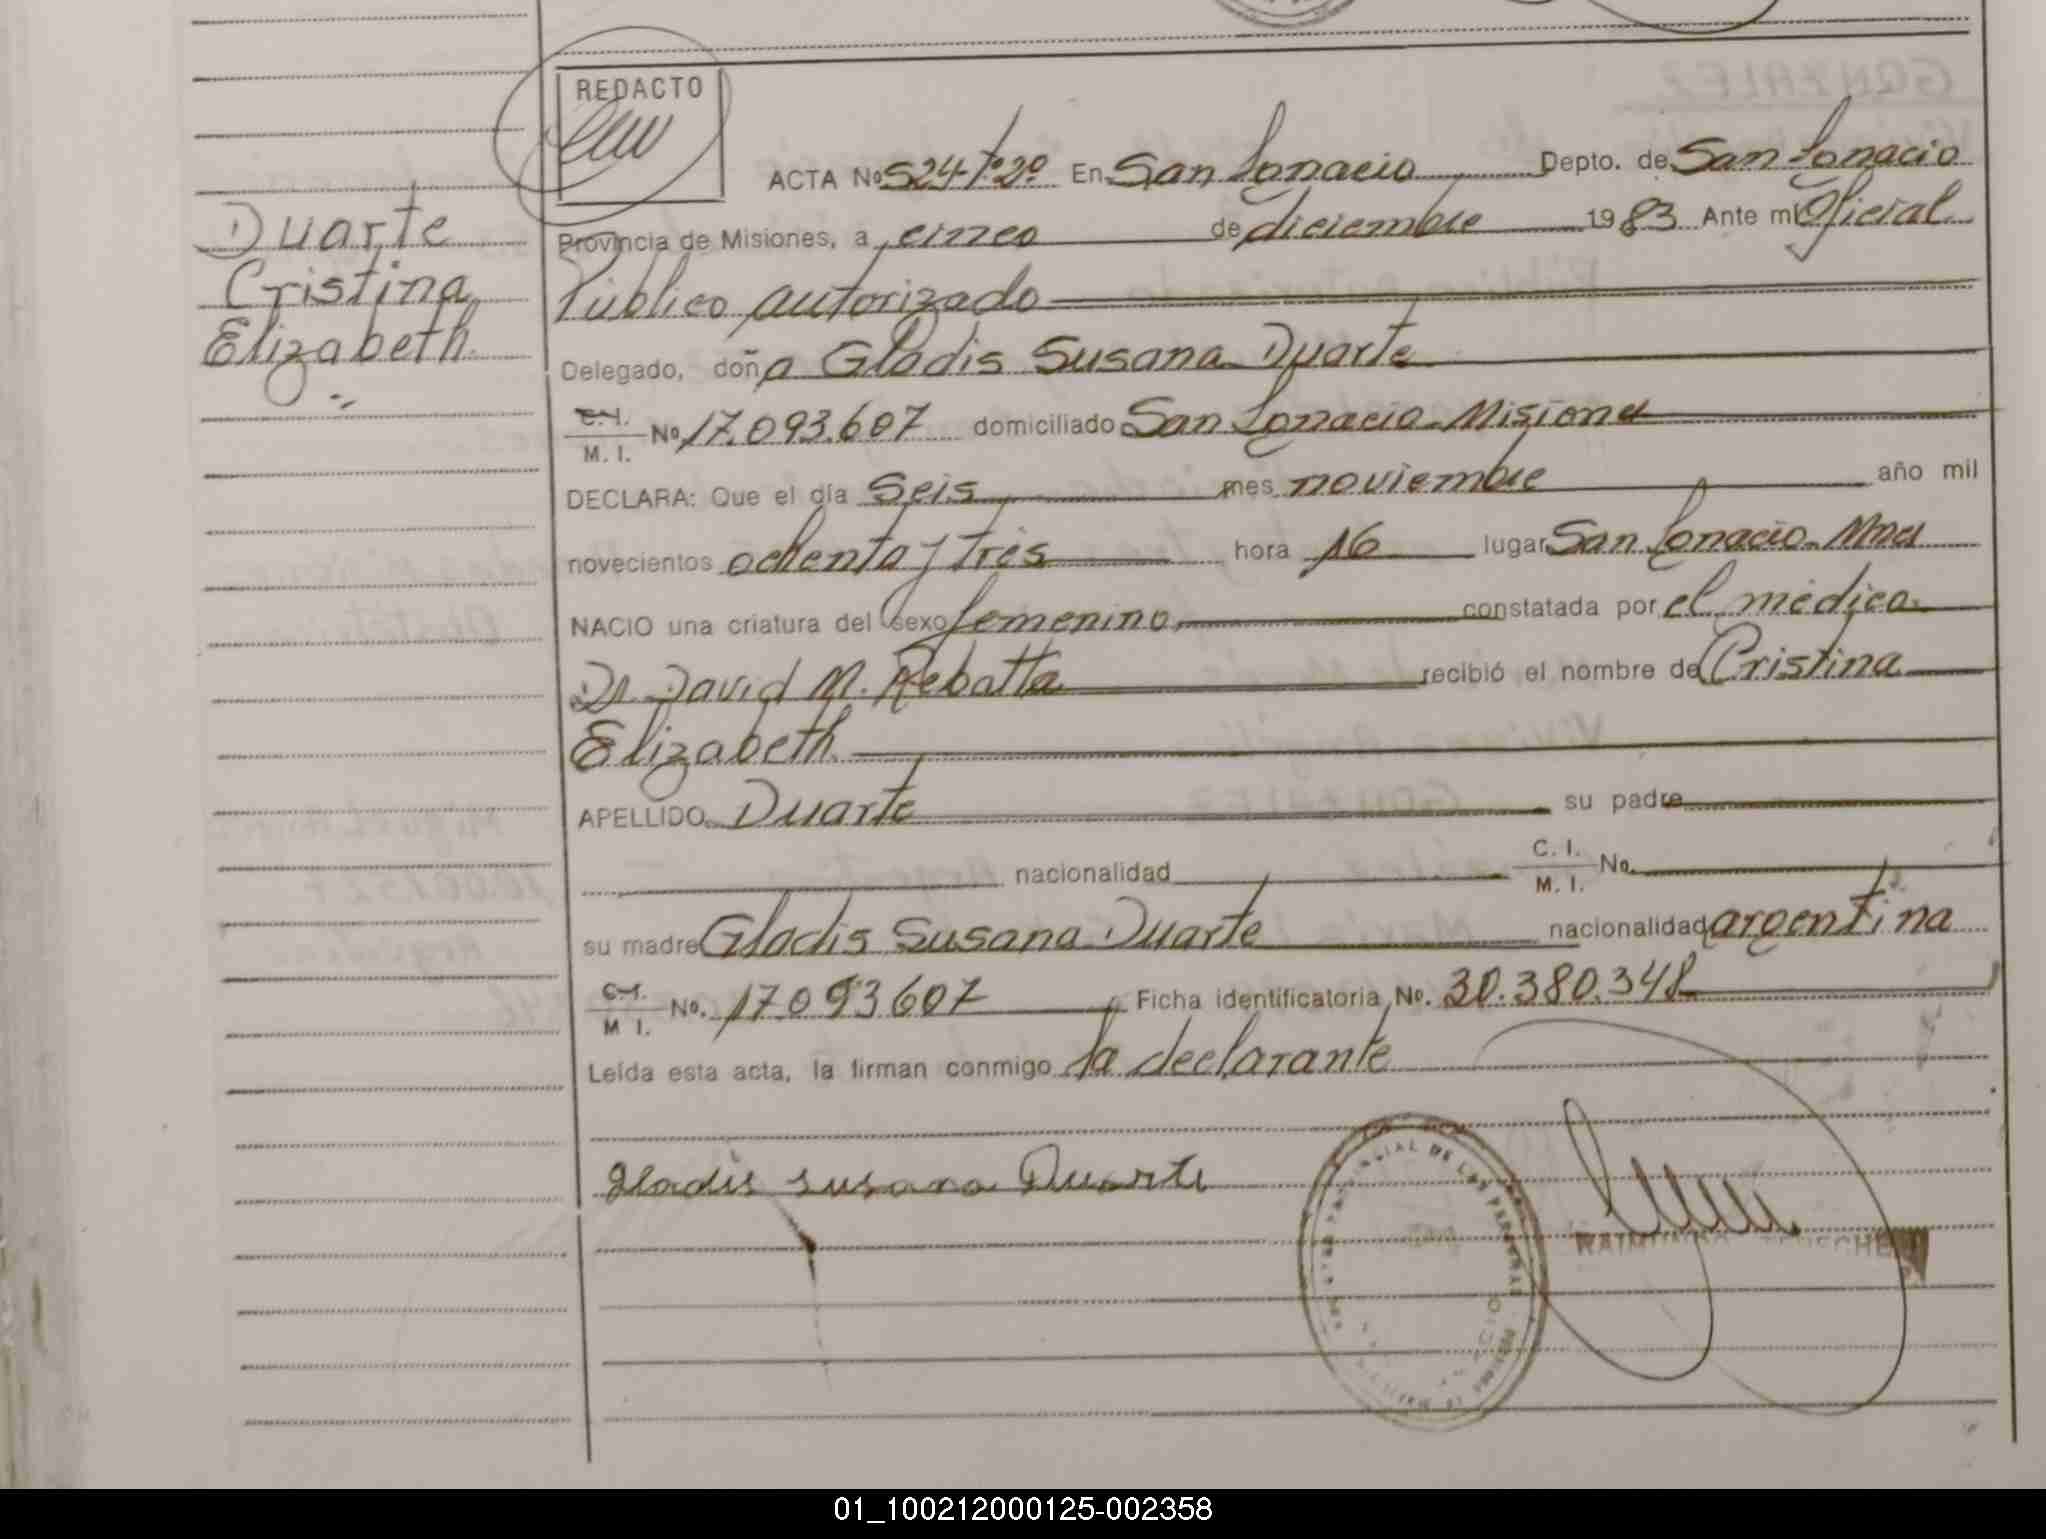 REDACTO
ACTA Nº 524-Tº2º En San Ignacio Depto. de San Ignacio
Duarte
Cristina
Elizabeth
Provincia de Misiones, a cinco de diciembre 1983 Ante mi Oficial
Público autorizado
Delegado, doña Gladis Susana Duarte
C.I.
M. I. Nº 17.093.607 domiciliado San Ignacio-Misiones
DECLARA: Que el día Seis mes noviembre año mil
novecientos ochenta y tres hora 16 lugar San Ignacio-Mnes
NACIO una criatura del sexo femenino constatada por el médico
Dr. David M. Rebatta recibió el nombre de Cristina
Elizabeth
APELLIDO Duarte su padre
nacionalidad C. I.
M. I. No.
su madre Gladis Susana Duarte nacionalidad argentina
C.I.
M I. No. 17.093.607 Ficha identificatoria No. 30.380.348
Leída esta acta, la firman conmigo la declarante
Gladis Susana Duarte
PROVINCIAL DE LAS PERSONAS
RAIMUNDO
01_100212000125-002358